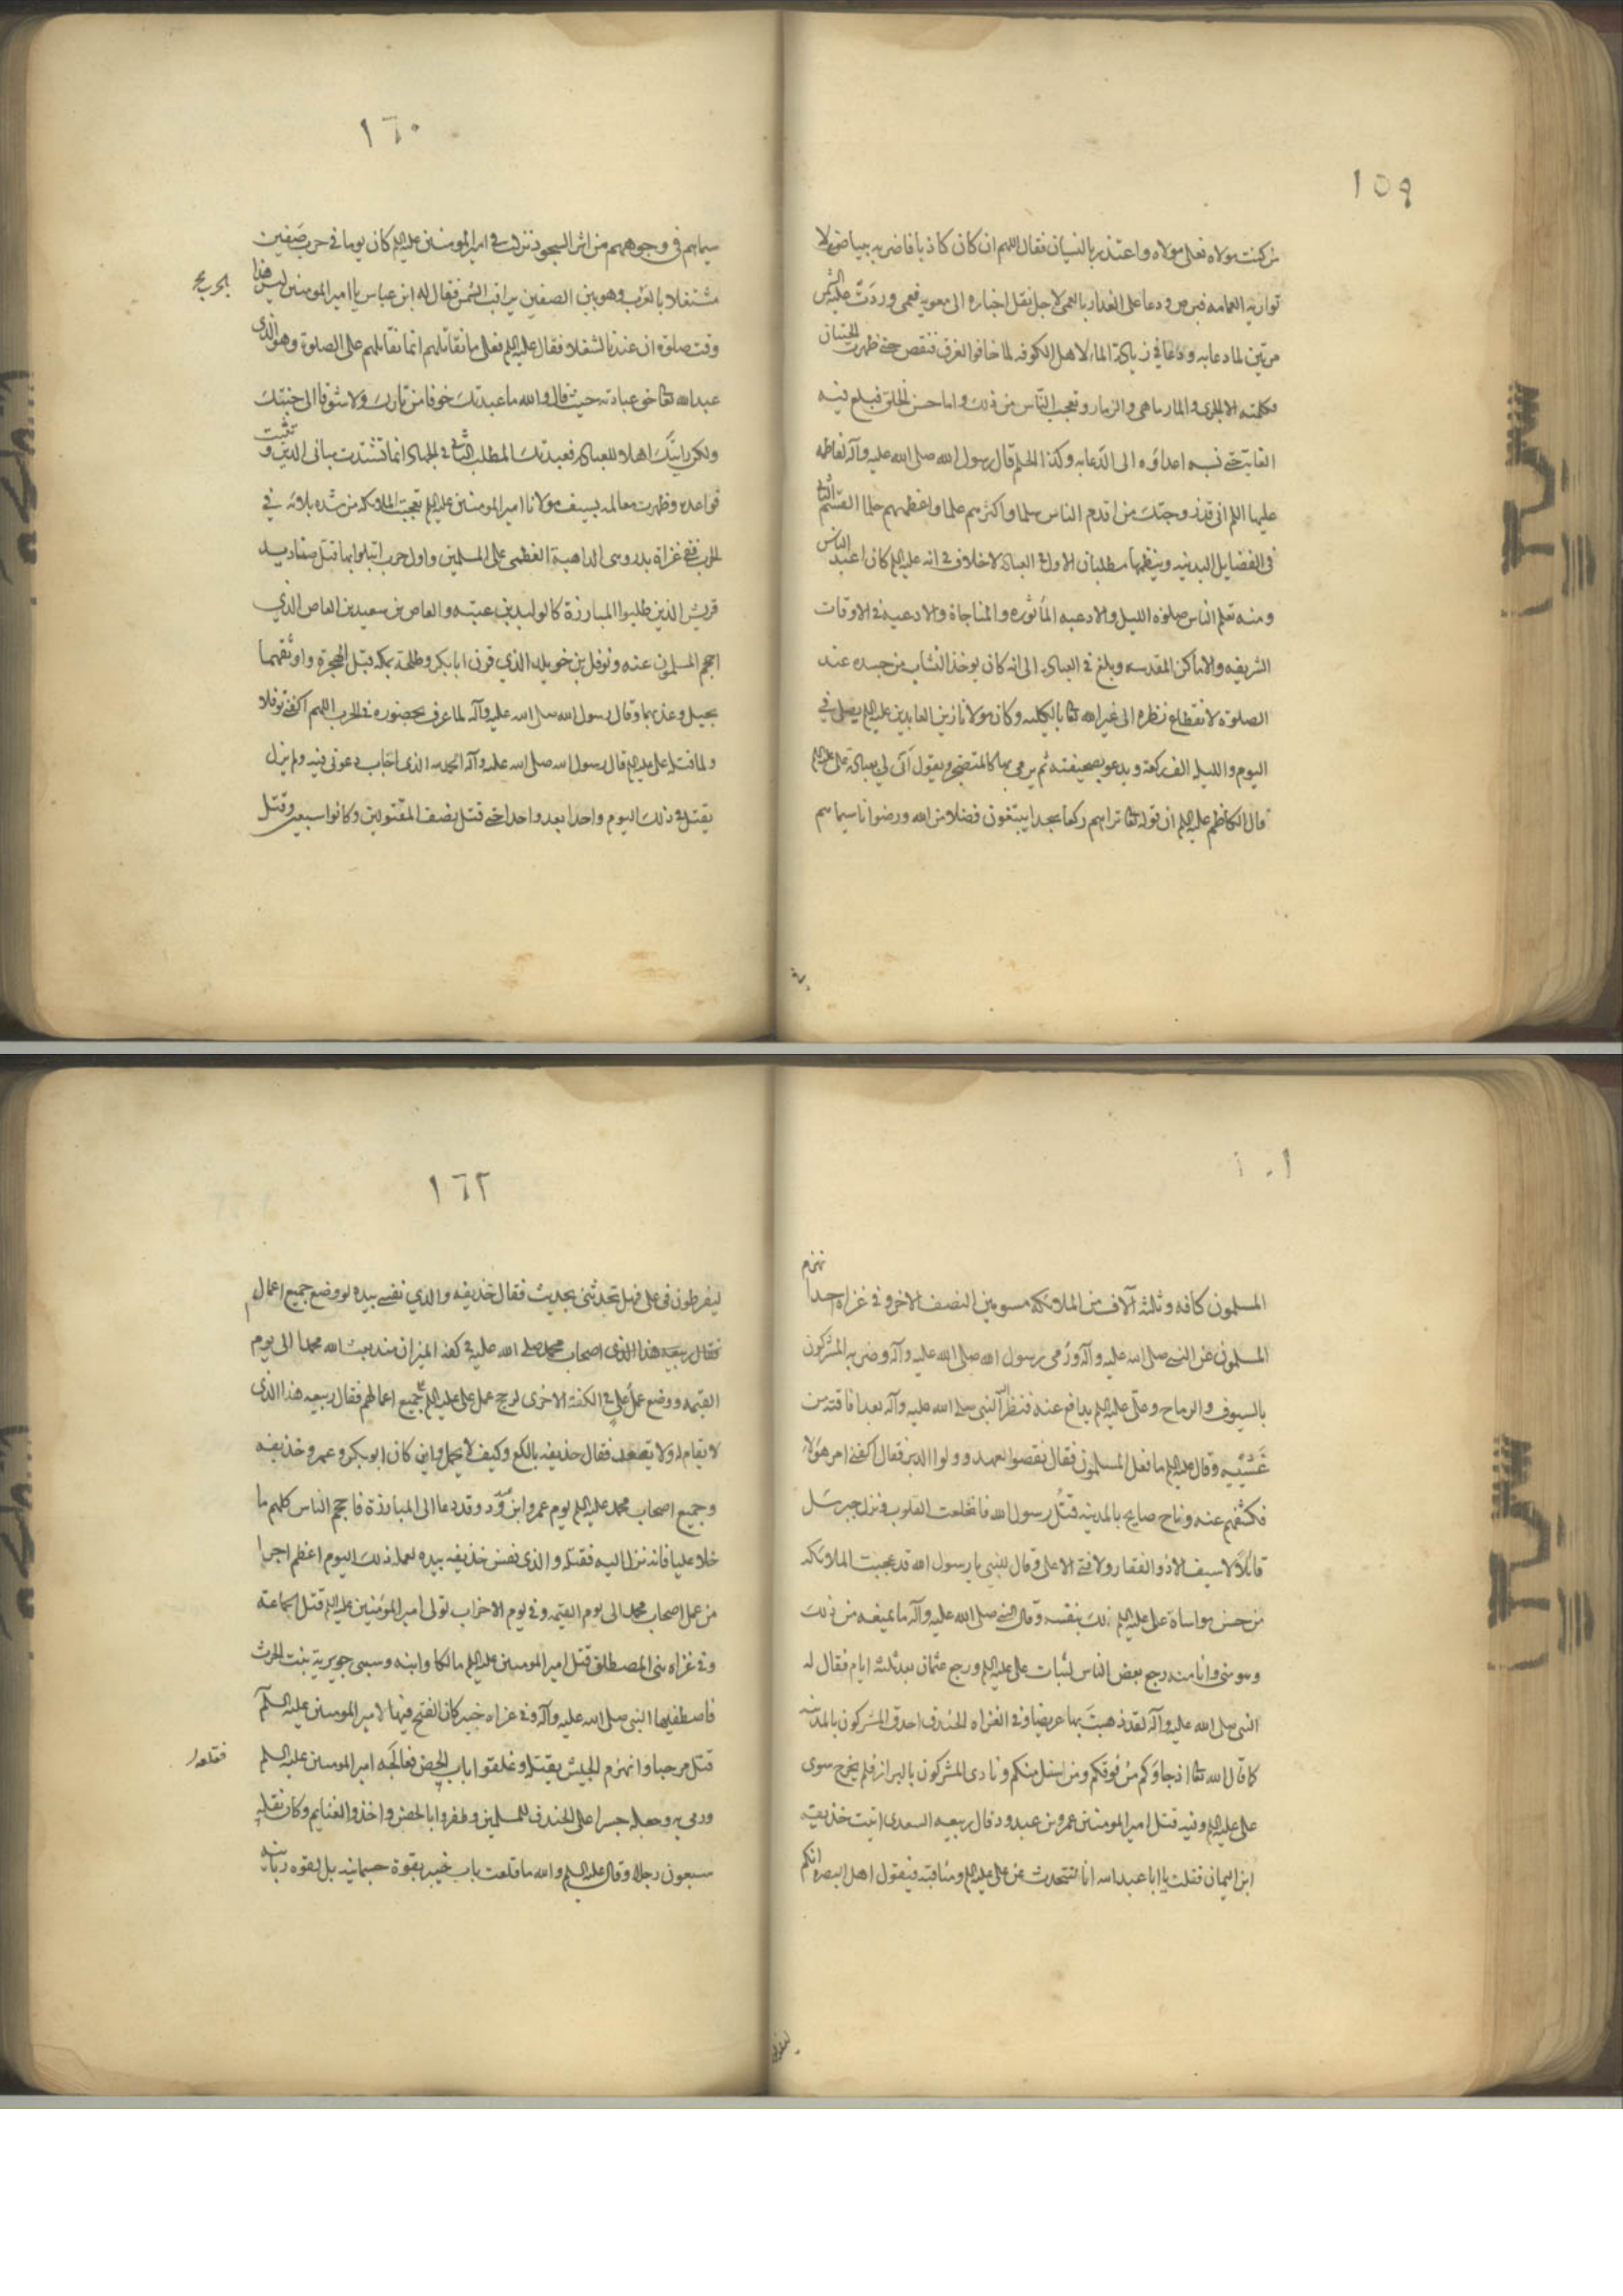 ١٥٩
من كنت مولاه فعلي مولاه واعتذر بالنسيان فقال اللهم ان كان كاذبا فاضربه ببياض لا
تواريه العمامه فبرص ودعا على الغدار بالعمى لاجل نقل اخباره الى معويه فعمى وردّت عليه الشمس
مرتين لما دعا به ودعا في زيادة الماء لاهل الكوفه لما خافوا الغرق فنقص حتى ظهرت الحيتان
فكلمته الا الجرى والمارماهى والزمار وتعجب الناس من ذلك واما حسن الخلق فبلغ فيه
الغاية حتى نسبه اعداؤه الى الدعابه وكذا الحلم قال رسول الله صلى الله عليه وآله لفاطمه
عليها السلام اني قد زوجتك من اقدم الناس سلما واكثرهم علما واعظمهم حلما القسم الثاني
في الفضايل البدنيه وينظمها مطلبان الاول في العباده لا خلاف في انه عليه السلام كان اعبد الناس
ومنه تعلم الناس صلوة الليل والادعيه المأثوره والمناجاة والادعيه في الاوقات
الشريفه والاماكن المقدسه وبلغ في العباده الى انه كان يوخذ النشاب من جسده عند
الصلوة لانقطاع نظره الى غير الله تعالى بالكليه وكان مولانا زين العابدين عليه السلام يصلى في
اليوم والليله الف ركعة ويدعو بصحيفته ثم يرمى بها كالمتضجر ويقول انى لى بعبادة على عليه السلام
قال الكاظم عليه السلام ان قوله تعالى تراهم ركعا سجدا يبتغون فضلا من الله ورضوانا سيماهم
١٦٠
سيماهم في وجوههم من اثر السجود نزلت في امير المومنين عليه السلام كان يوما في حرب صفين
مشتغلا بالحرب وهو بين الصفين يراقب الشمس فقال له ابن عباس يا امير المومنين ليس هذا
وقت صلوة ان عندنا لشغلا فقال عليه السلام فعلى ما نقاتلهم انما نقاتلهم على الصلوة وهو الذى
عبد الله تعالى حق عبادته حيث قال والله ما عبدتك خوفا من نارك ولا شوقا الى جنتك
ولكن رايتك اهلا للعباده فعبدتك المطلب الثاني في الجهاد انما تشيدت مباني الدين و تثبت
قواعده وظهرت معالمه بسيف مولانا امير المومنين عليه السلام تعجبت الملائكه من شده بلائه في
الحرب ففي غزاة بدر وهى الداهية العظمى على المسلمين واول حرب ابتلوا بها قتل صناديد
قريش الذين طلبوا المبارزة كالوليد بن عتبه والعاص بن سعيد بن العاص الذي
احجم المسلمون عنه ونوفل بن خويلد الذي قرن ابا بكر وطلحة بمكه قبل الهجرة واوثقهما
بحبل وعذبهما وقال رسول الله صلى الله عليه وآله لما عرف بحضوره في الحرب اللهم اكفنى نوفلا
ولما قتله على عليه السلام قال رسول الله صلى الله عليه وآله الحمد لله الذى اجاب دعوتى فيه ولم يزل
يقتل في ذلك اليوم واحدا بعد واحد حتى قتل نصف المقتولين وكانوا سبعين وقتل
المسلمون كافه وثلثه آلاف من الملائكه مسومين النصف الاخر وفي غزاه احد انهزم
المسلمون عن النبى صلى الله عليه وآله ورُمى رسول الله صلى الله عليه وآله وضربه المشركون
بالسيوف والرماح وعلى عليه السلام يدافع عنه فنظر اليه النبى صلى الله عليه وآله بعد افاقته من
غشيته وقال عليه السلام ما فعل المسلمون فقال نقضوا العهد وولوا الدبر فقال اكفنى امر هؤلاء
فكشفهم عنه وناح صايح بالمدينه قتل رسول الله فانخلعت القلوب ونزل جبرئيل
قائلا لا سيف الا ذو الفقار ولا فتى الا على وقال للنبى يا رسول الله قد عجبت الملائكه
من حسن مواساة على عليه السلام لك بنفسه وقال النبى صلى الله عليه وآله ما يمنعه من ذلك
وهو منى وانا منه رجع بعض الناس لثبات على عليه السلام ورجع عثمان بعد ثلثه ايام فقال له
النبى صلى الله عليه وآله لقد ذهبت بها عريضا وفي الغزاه الخندق احدق المشركون بالمدينه
كما قال الله تعالى اذ جاؤكم من فوقكم ومن اسفل منكم ونادى المشركون بالبراز فلم يخرج سوى
على عليه السلام وفيه قتل امير المومنين عمرو بن عبد ود قال ربيعه السعدى اتيت حذيفه
ابن اليمان فقلت يا ابا عبد الله انا لنتحدث عن على عليه السلام ومناقبه فيقول اهل البصره انكم
١٦٢
ليفرطون في على فهل تحدثنى بحديث فقال حذيفه والذي نفسى بيده لو وضع جميع اعمال
اصحاب محمد صلى الله عليه في كفه الميزان منذ بعث الله محمدا الى يوم
القيمه ووضع عمل على في الكفة الاخرى لرجح عمل على عليه السلام على جميع اعمالهم فقال ربيعه هذا الذى
لا يقام له ولا يقعد فقال حذيفه يالكع وكيف لا يحمل واين كان ابو بكر وعمر وحذيفه
وجميع اصحاب محمد عليه السلام يوم عمرو ابن ود وقد دعا الى المبارزة فاحجم الناس كلهم ما
خلا عليا فانه نزل اليه فقتله والذى نفس حذيفه بيده لعمله ذلك اليوم اعظم اجرا
من عمل اصحاب محمد الى يوم القيمه وفي يوم الاحزاب تولى امير المؤمنين عليه السلام قتل الجماعة
وفي غزاه بنى المصطلق قتل امير المومنين عليه السلام مالكا وابنه وسبى جويرية بنت الحرث
فاصطفيها النبى صلى الله عليه وآله وفي غزاه خيبر كان الفتح فيها لامير المومنين عليه السلم
قتل مرحبا وانهزم الجيش بقتله وغلقوا باب الحصن فعالجه امير المومنين عليه السلم فقلعه
ورمى به وجعله جسرا على الخندق للمسلمين وظفروا بالحصن واخذوا الغنايم وكان يقله
سبعون رجلا وقال عليه السلم والله ما قلعت باب خيبر بقوة جسمانيه بل بقوه ربانيه